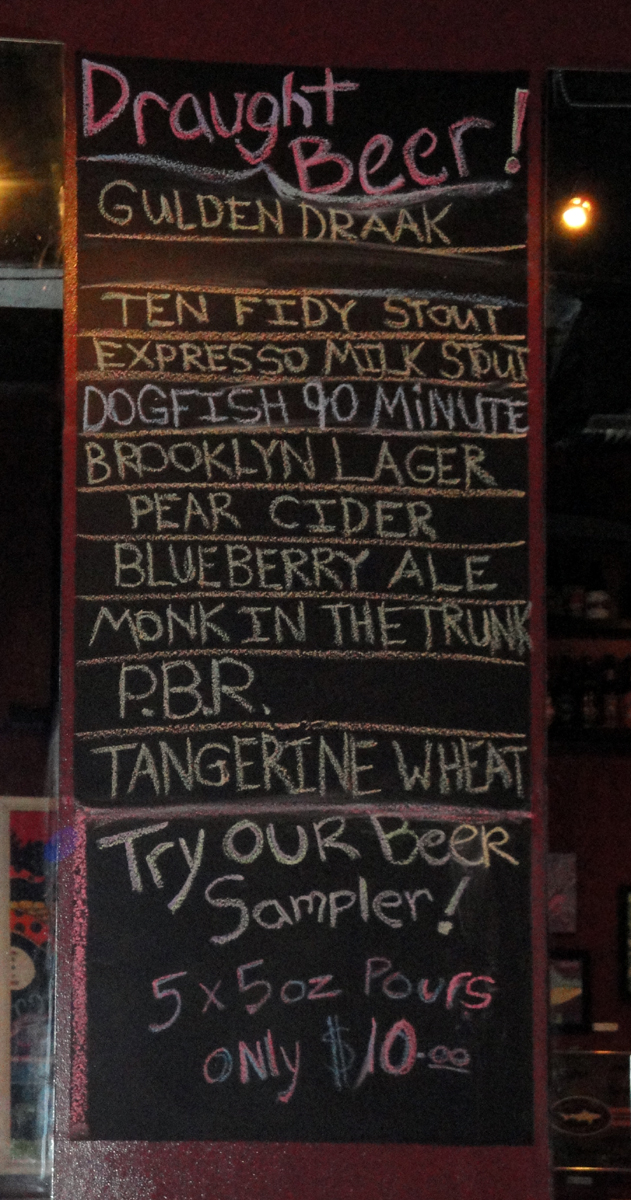 Draught
Beer!
GULDEN DRAAK
TEN FIDY STOUT
EXPRESSO MILK STOUT
DOGFISH 90 MINUTE
BROOKLYN LAGER
PEAR CIDER
BLUEBERRY ALE
MONK IN THE TRUNK
P.B.R.
TANGERINE WHEAT
Try OUR Beer
Sampler!
5 x 5 oz Pours
ONly $10.00